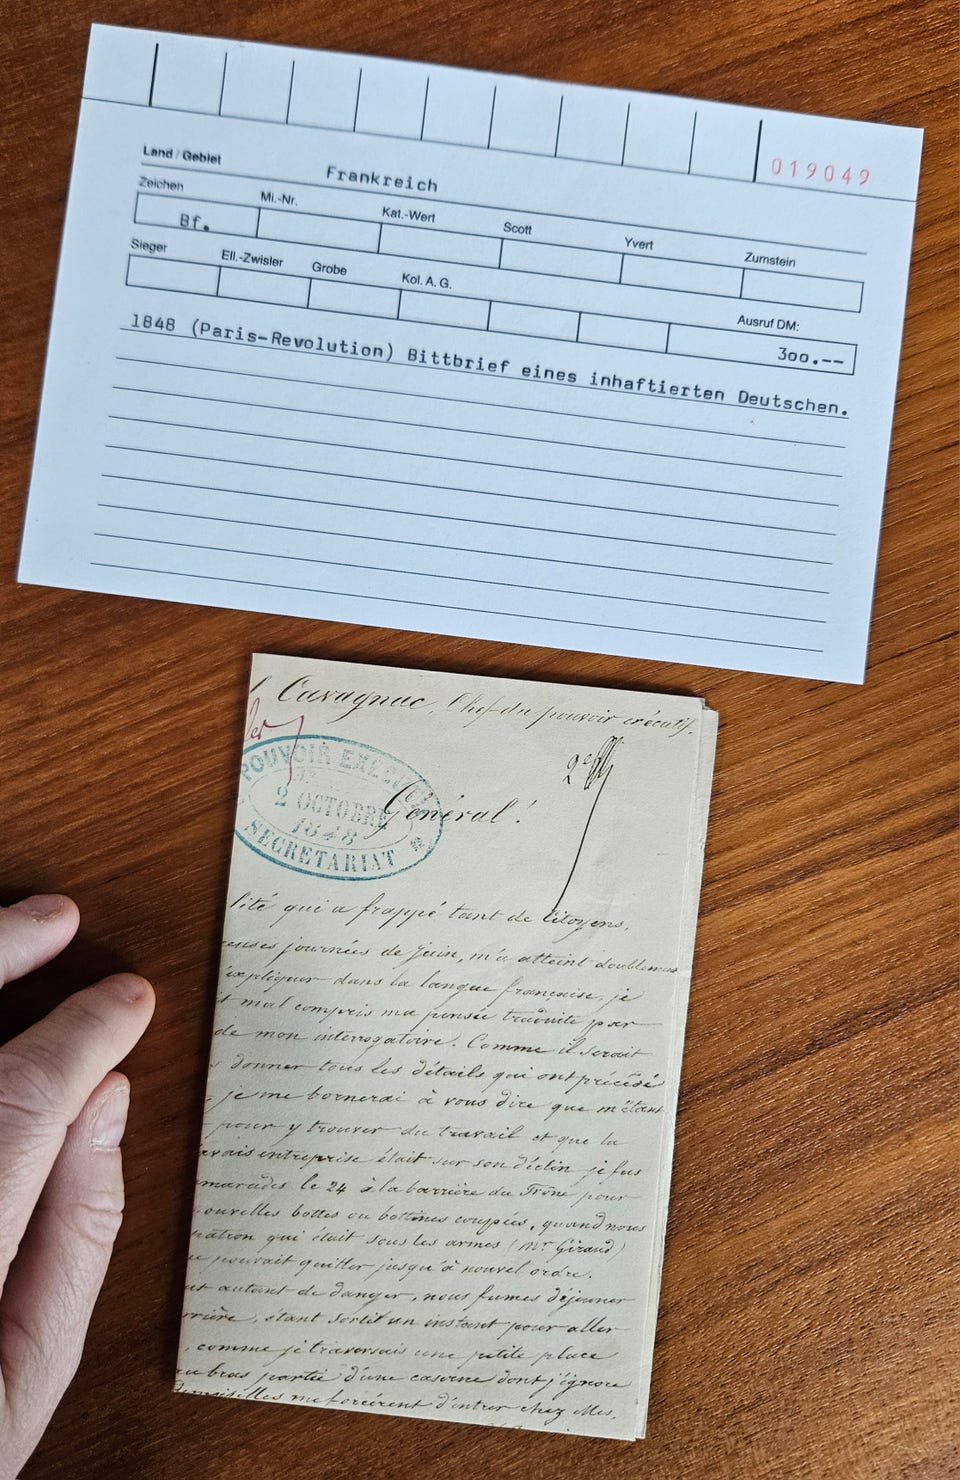 019049
Land / Gebiet
Frankreich
Zeichen Mi.-Nr. Kat.-Wert Scott Yvert Zumstein
Bf.
Sieger Ell.-Zwisler Grobe Kol. A. G. Ausruf DM:
3oo.--
1848 (Paris-Revolution) Bittbrief eines inhaftierten Deutschen.
Cavagnac, Chef du pouvoir exécutif.
POUVOIR EXECUTIF
2 OCTOBRE
1848
SECRETARIAT
2e
Général!
lité qui a frappé tant de Citoyens,
enses journées de juin, m'a atteint doublement
expliquer dans la langue française, je
mal compris ma pensée traduite par
de mon interrogatoire. Comme il serait
donner tous les détails qui ont précédé
je me bornerai à vous dire que m'étant
pour y trouver du travail et que la
entreprise était sur son déclin je fus
marades le 24 à la barrière du Trône pour
nouvelles bottes ou bottines coupées, quand nous
ration qui était sous les armes (Mr Giraud)
pouvait quitter jusqu'à nouvel ordre.
autant de danger, nous fumes déjeuner
rrière, étant sortit un instant pour aller
, comme je traversais une petite place
au bras partie d'une caserne dont j'ignore
demoiselles me forcèrent d'entrer chez elles,